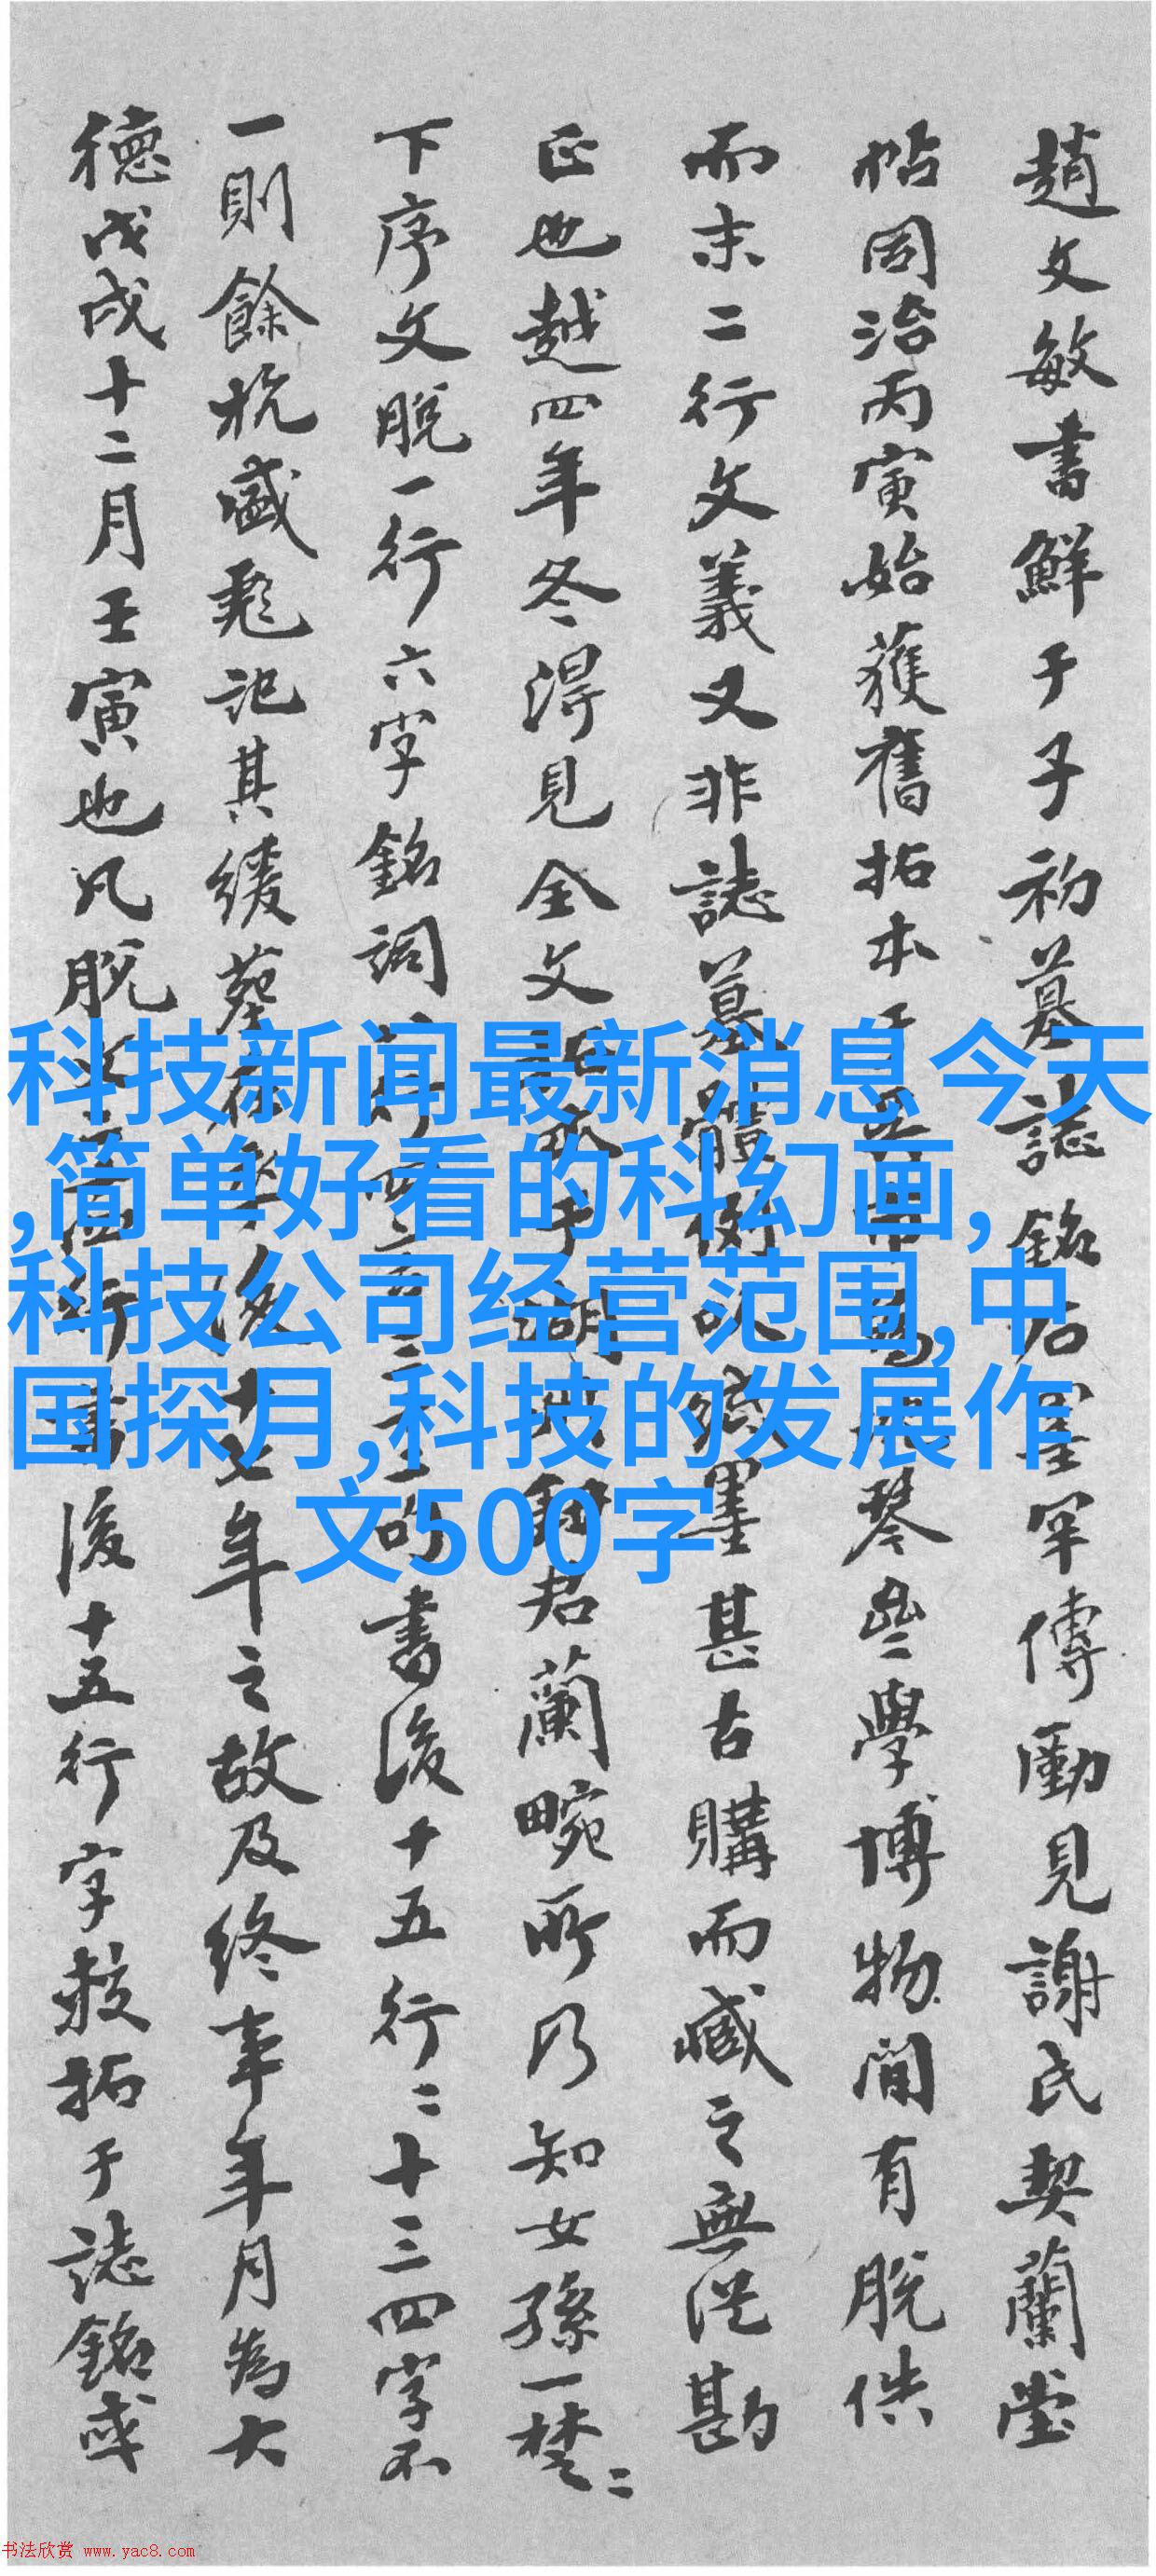 趙文敏書鮮于子初墓誌銘石墨罕傳勵見謝氏契蘭堂
帖同治丙寅始獲舊拓本于琴學博物間有脫佚
而末二行文義又非誌墓體例墨甚古購而臧之無從勘
正也越四年冬得見全文君蘭畹所乃知女孫一樷二
下序文脫一行六字銘詞書後十五行二十三四字不
一則餘杭盛彪記其緩葬年之故及終事年月為大
德戊戌十二月壬寅也凡脫書後十五行字數拓于誌銘或
科技新闻最新消息今天
,简单好看的科幻画,
科技公司经营范围,中
国探月,科技的发展作
文500字
书法欣赏 www.yac8.com